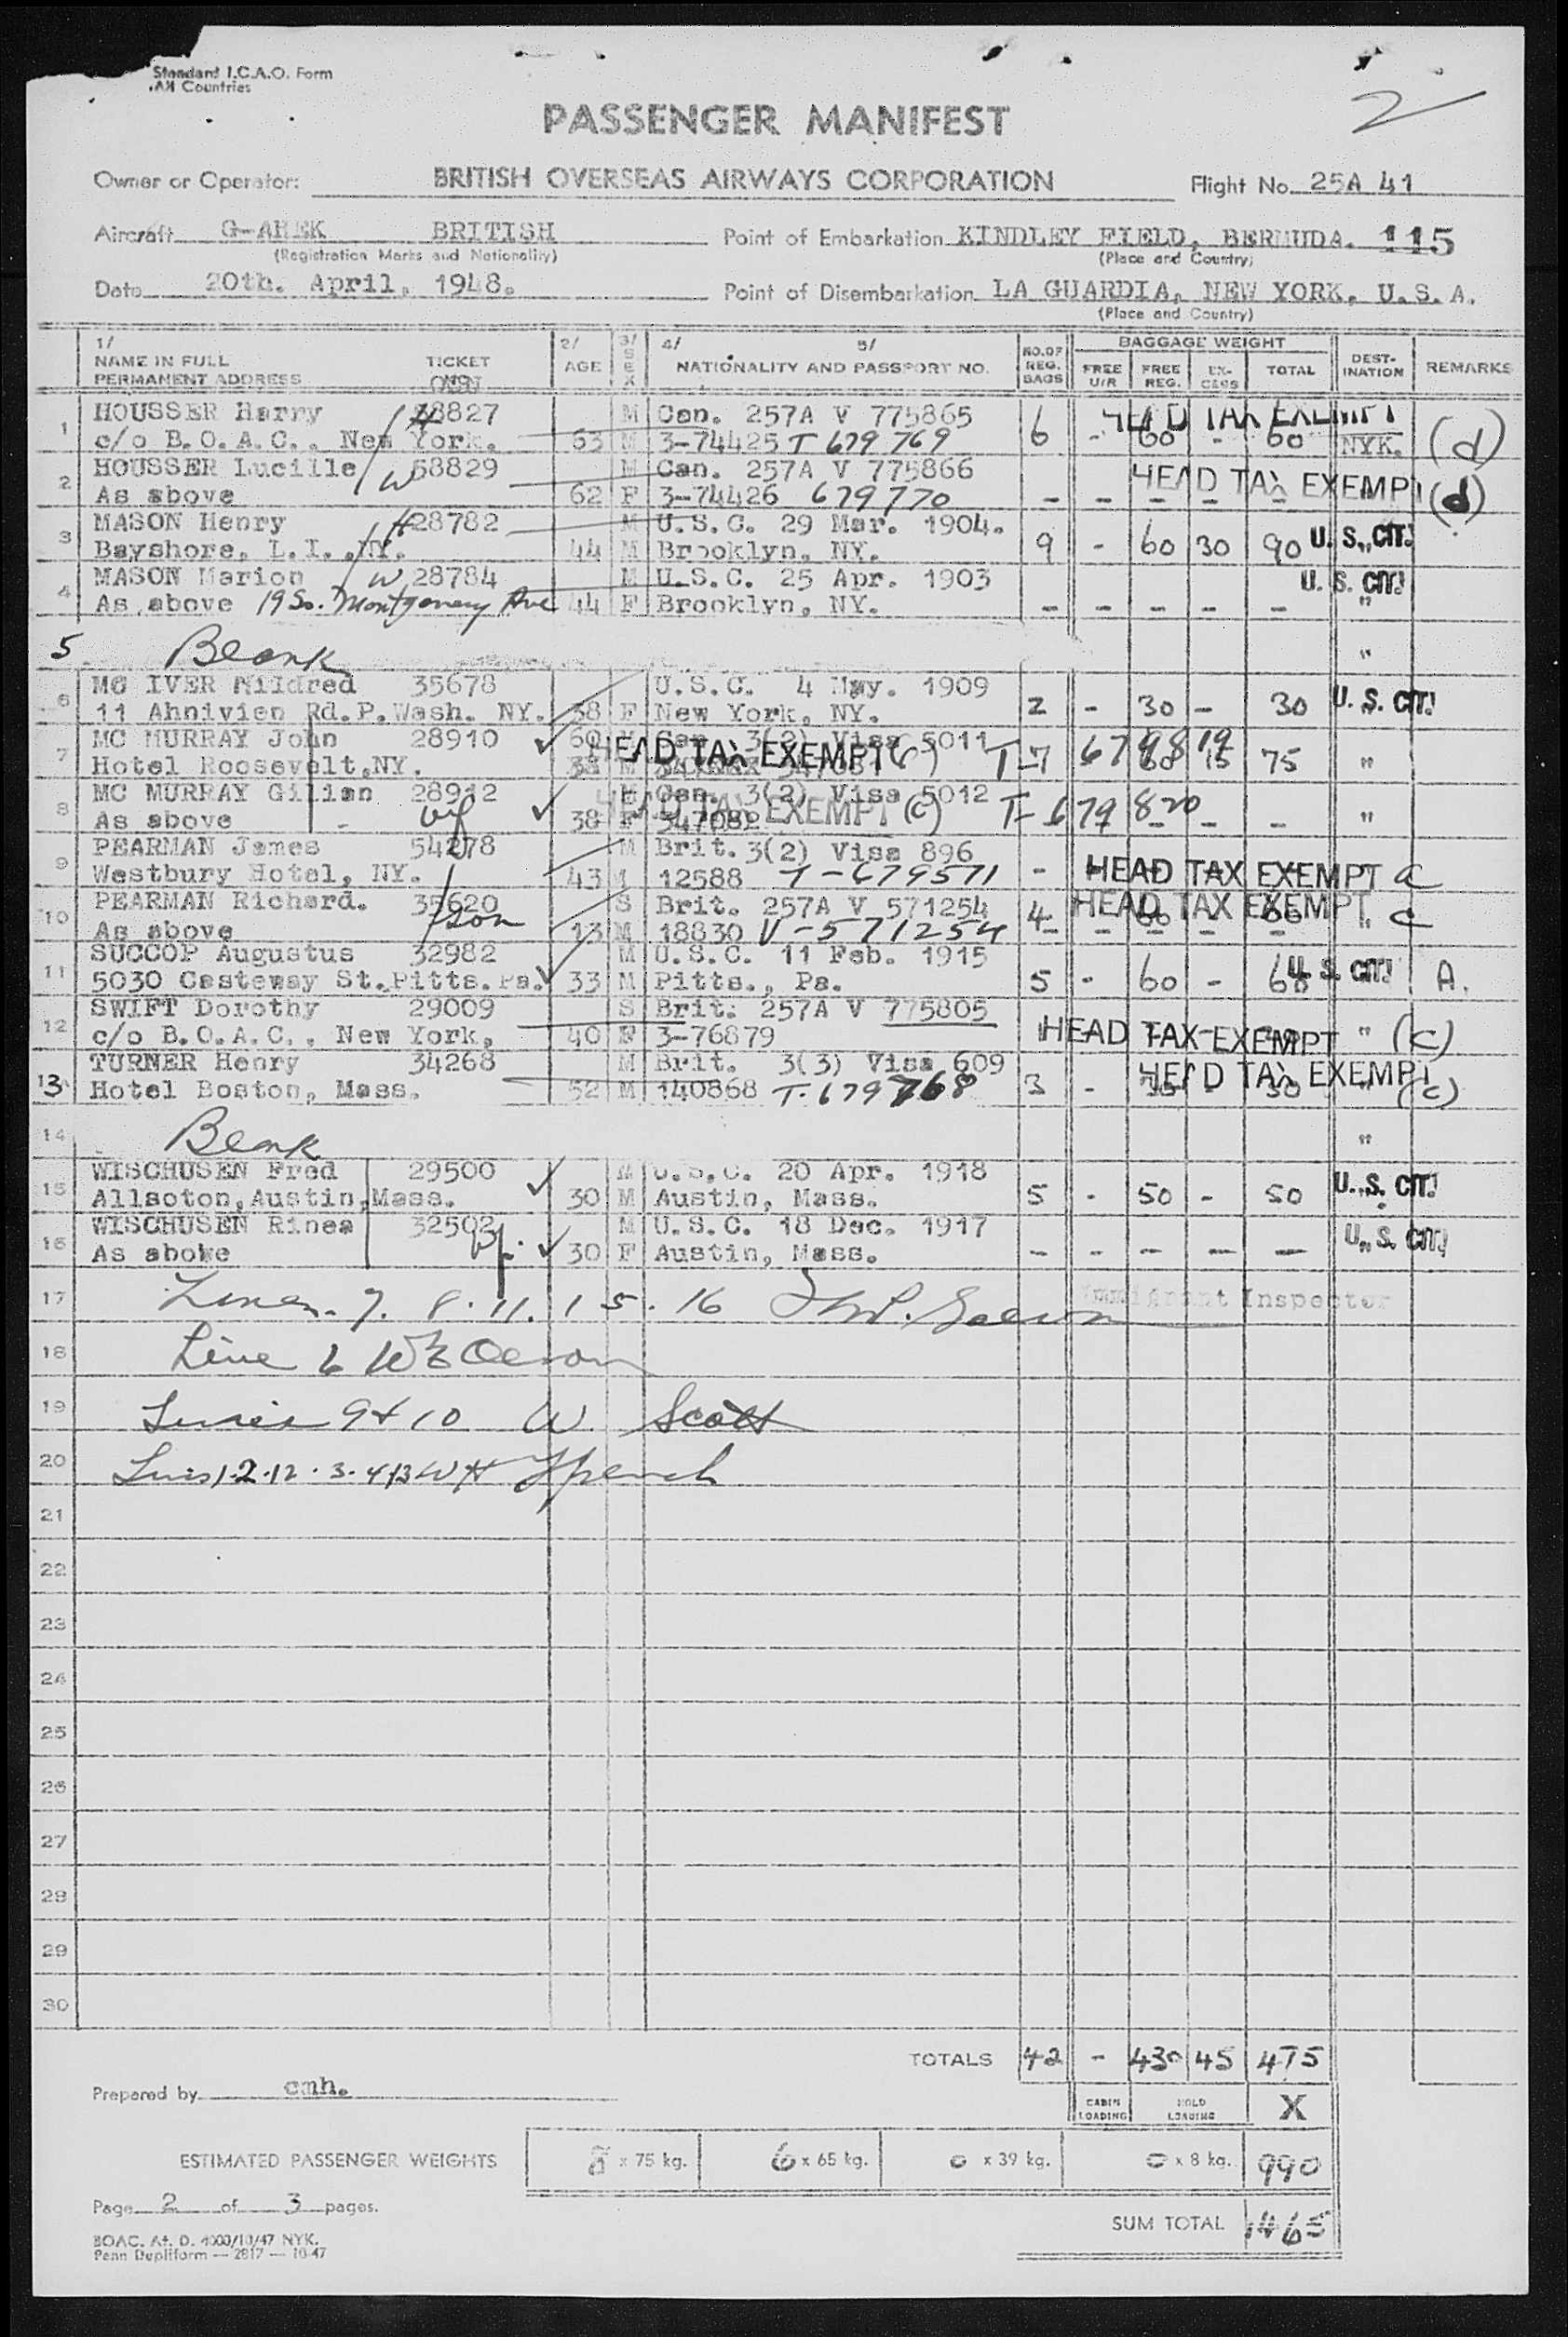 Standard I.C.A.O. Form
All Countries
2
PASSENGER MANIFEST
Owner or Operator: BRITISH OVERSEAS AIRWAYS CORPORATION Flight No. 25A 41
Aircraft G-AHEK BRITISH Point of Embarkation KINDLEY FIELD, BERMUDA. 115
(Registration Marks and Nationality) (Place and Country)
Date 20th. April, 1948. Point of Disembarkation LA GUARDIA, NEW YORK, U.S.A.
(Place and Country)
1/ 2/ 3/ 4/ 5/ NO. OF REG. BAGS BAGGAGE WEIGHT
NAME IN FULL TICKET AGE SEX NATIONALITY AND PASSPORT NO. FREE U/R FREE REG. EX-CESS TOTAL DEST-INATION REMARKS
PERMANENT ADDRESS
1 HOUSSER Harry H 28827 M Can. 257A V 775865 HEAD TAX EXEMPT
c/o B.O.A.C., New York. 63 M 3-74425 T 679769 6 - 60 - 60 NYK. (d)
2 HOUSSER Lucille W 68829 M Can. 257A V 775866 HEAD TAX EXEMPT
As above 62 F 3-74426 679770 - - - - - (d)
3 MASON Henry H 28782 M U.S.C. 29 Mar. 1904.
Bayshore, L.I.,NY. 44 M Brooklyn, NY. 9 - 60 30 90 " U.S. CIT.
4 MASON Marion W 28784 M U.S.C. 25 Apr. 1903 U.S. CIT.
As above 19 So. Montgomery Ave 44 F Brooklyn, NY. - - - - - "
5 Blank "
6 MC IVER Mildred 35678 U.S.C. 4 May. 1909
11 Ahnivien Rd.P.Wash. NY. 38 F New York, NY. 2 - 30 - 30 U.S. CIT.
7 MC MURRAY John 28910 60 M Can. 3(2) Visa 5011
Hotel Roosevelt,NY. M HEAD TAX EXEMPT (c) T- 679819 7 60 15 75 "
8 MC MURRAY Gilian 28912 M Can. 3(2) Visa 5012
As above wf 38 F 347082 HEAD TAX EXEMPT (c) T- 679820 - - - "
9 PEARMAN James 54278 M Brit. 3(2) Visa 896
Westbury Hotel, NY. 43 12588 T-679571 - HEAD TAX EXEMPT C
10 PEARMAN Richard. 35620 S Brit. 257A V 571254 4 HEAD TAX EXEMPT " C
As above son 13 M 18830 V-571254 - - - - -
11 SUCCOP Augustus 32982 M U.S.C. 11 Feb. 1915
5030 Casteway St.Pitts.Pa. 33 M Pitts., Pa. 5 - 60 - 60 U.S. CIT. A.
12 SWIFT Dorothy 29009 S Brit. 257A V 775805
c/o B.O.A.C., New York, 40 F 3-76879 HEAD TAX EXEMPT " (c)
13 TURNER Henry 34268 M Brit. 3(3) Visa 609 HEAD TAX EXEMPT
Hotel Boston, Mass. 52 M 140868 T-679768 3 - 30 - 30 " (c)
14 Blank "
15 WISCHUSEN Fred 29500 M U.S.C. 20 Apr. 1918
Allsoton,Austin,Mass. 30 M Austin, Mass. 5 - 50 - 50 U.S. CIT.
16 WISCHUSEN Rinea 32502 M U.S.C. 18 Dec. 1917 U.S. CIT.
As above wf. 30 F Austin, Mass. - - - - -
17 Lines. 7. 8. 11. 15. 16 Immigrant Inspector
18 Line 6
19 Lines 9 + 10 W Scott
20 Lines 1.2.12.3.4 13 W H French
21
22
23
24
25
26
27
28
29
30
TOTALS 42 - 430 45 475
Prepared by cmh.
CABIN LOADING HOLD LOADING X
ESTIMATED PASSENGER WEIGHTS 8 x 75 kg. 6 x 65 kg. 0 x 39 kg. 0 x 8 kg. 990
Page 2 of 3 pages.
SUM TOTAL 1465
BOAC. At. D. 4000/10/47 NYK.
Penn Dupliform — 2817 — 10-47